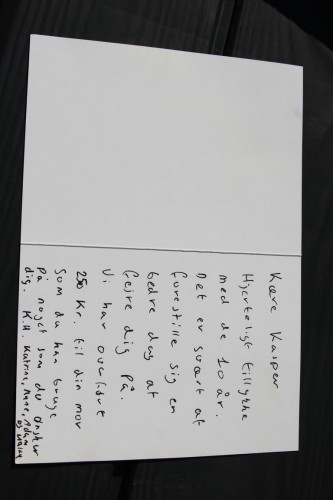 Kære Kasper
Hjerteligt tillykke
med de 10 år.
Det er svært at
forestille sig en
bedre dag at
fejre dig på.
Vi har overført
250 kr. til din mor
som du kan bruge
på noget som du ønsker
dig. K.H. Katrine, Marc, Adam